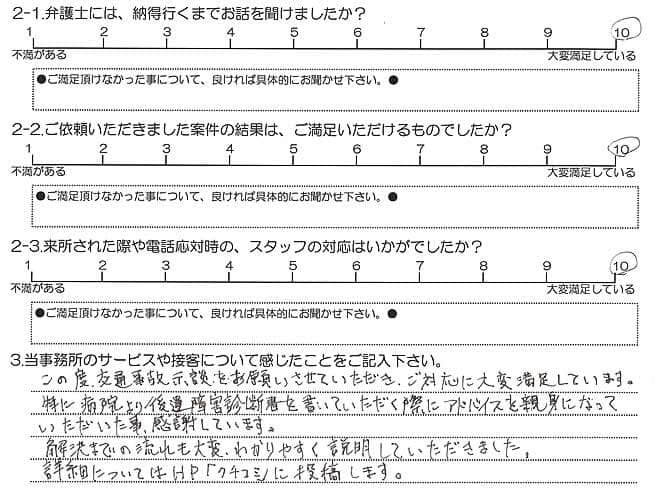 2-1.弁護士には、納得行くまでお話を聞けましたか？
1 2 3 4 5 6 7 8 9 10
不満がある 大変満足している
●ご満足頂けなかった事について、良ければ具体的にお聞かせ下さい。●
2-2.ご依頼いただきました案件の結果は、ご満足いただけるものでしたか？
1 2 3 4 5 6 7 8 9 10
不満がある 大変満足している
●ご満足頂けなかった事について、良ければ具体的にお聞かせ下さい。●
2-3.来所された際や電話応対時の、スタッフの対応はいかがでしたか？
1 2 3 4 5 6 7 8 9 10
不満がある 大変満足している
●ご満足頂けなかった事について、良ければ具体的にお聞かせ下さい。●
3.当事務所のサービスや接客について感じたことをご記入下さい。
この度、交通事故示談をお願いさせていただき、ご対応に大変満足しています。
特に病院より後遺障害診断書を書いていただく際にアドバイスを親身になって
いただいた事、感謝しています。
解決までの流れも大変、わかりやすく説明していただきました。
詳細についてはHP「クチコミ」に投稿します。